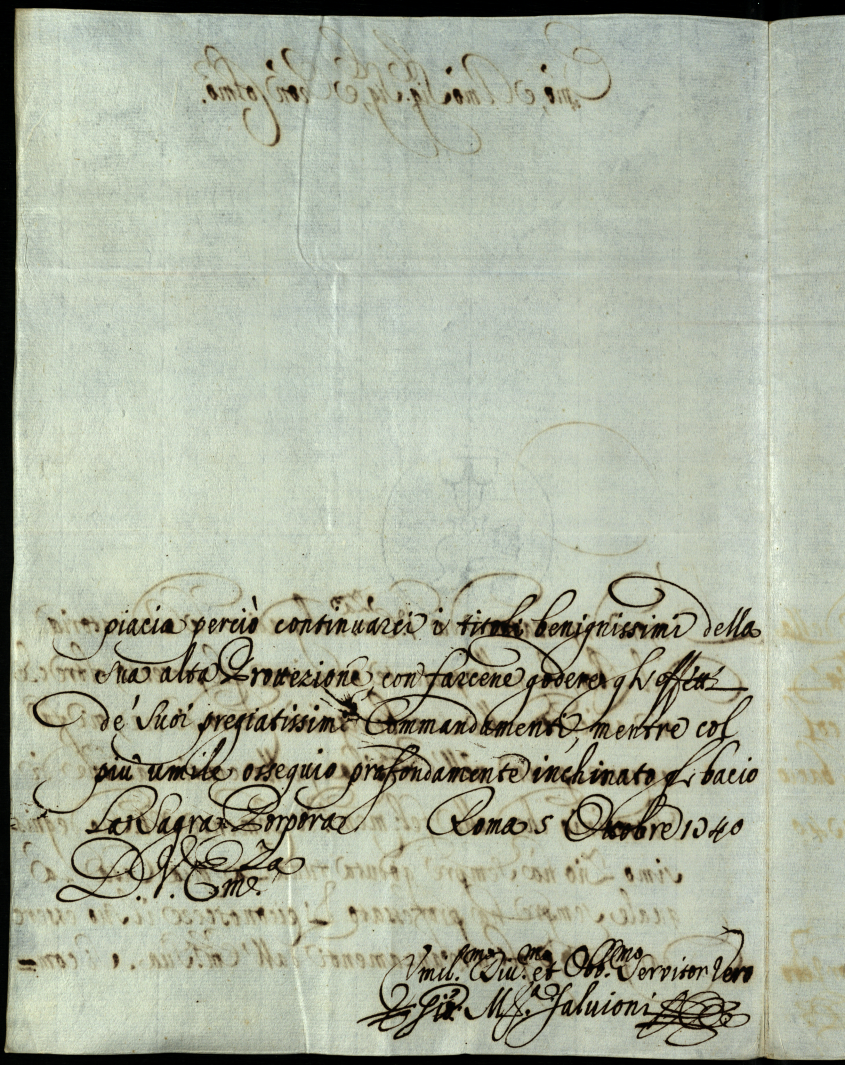 piacia perciò continuarci i titoli benignissimi della
sua alta Protezione, con farcene godere gl'effetti
de' suoi pregiatissimi Commandamenti, mentre col
più umile ossequio profondamente inchinato gli bacio
La Sagra Porpora Roma 5 Ottobre 1740
D. V. Em.za
Umil.mo Div.mo et Obb.mo Servitor Vero
Gio: M.a Salvioni